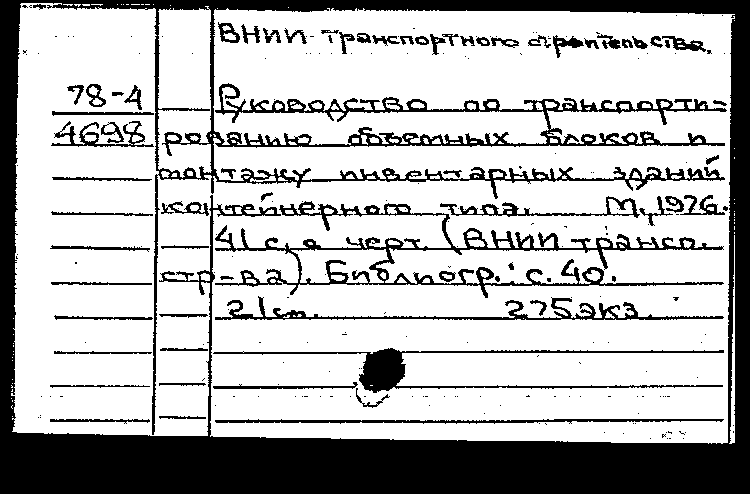 ВНИИ транспортного строительства.
78-4 Руководство по транспорти-
4698 рованию объемных блоков и
монтажу инвентарных зданий
контейнерного типа. М., 1976.
41 с. с черт. (ВНИИ трансп.
стр-ва). Библиогр.: с. 40.
21 см. 275 экз.